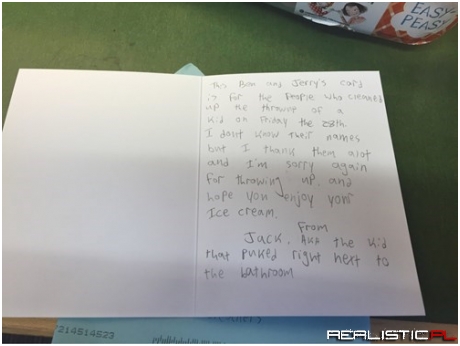 EASY-
PEASY
This Ben and Jerry's card
is for the people who cleaned
up the throwup of a
kid on Friday the 28th.
I dont know their names
but I thank them alot
and I'm sorry again
for throwing up. and
hope you enjoy your
Ice cream.
From
Jack, AKA the kid
that puked right next to
the bathroom
214514523
REALISTIC.PL